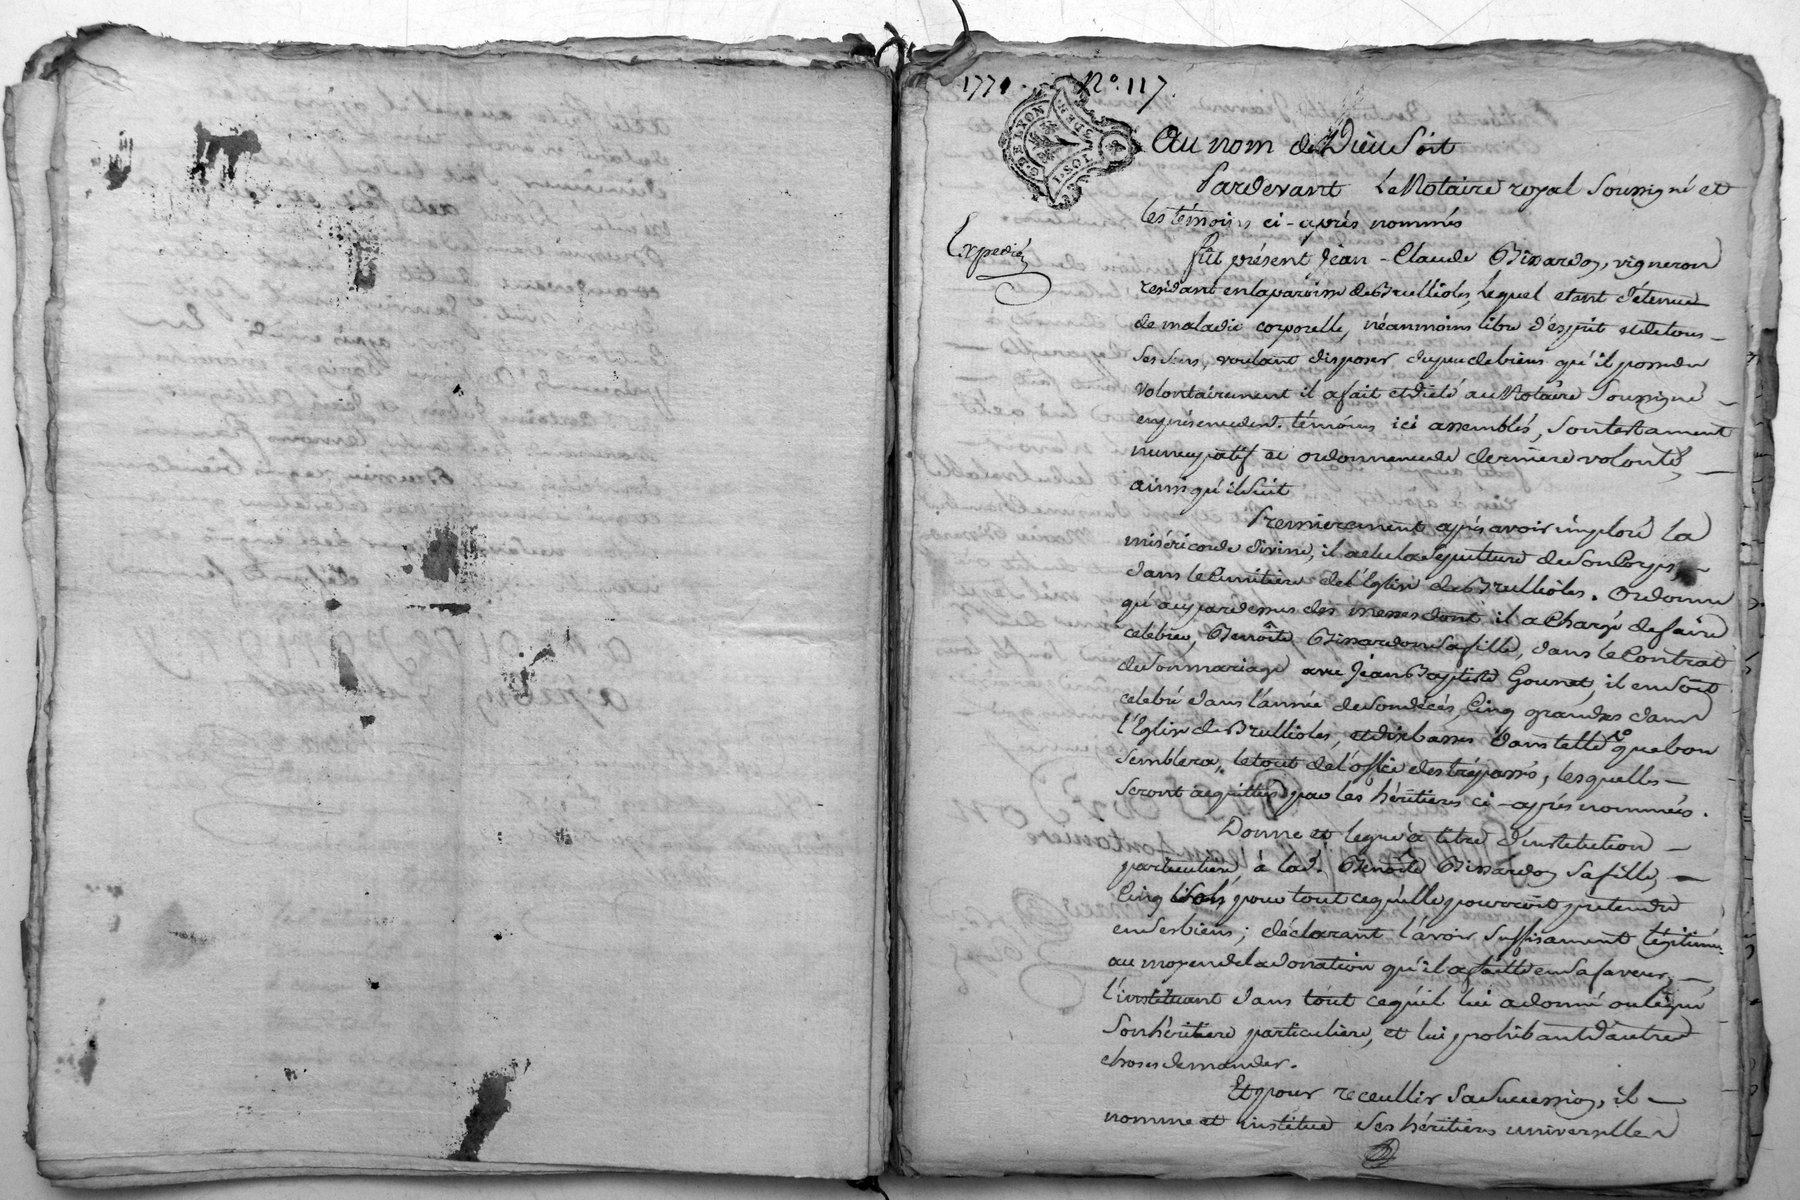 1771. N.º 117.
G. DE LYON
Au nom de Dieu Soit
Pardevant Le Notaire royal Soussigné et
les témoins ci-après nommés
Expedié
fut présent Jean-Claude Bissardon, vigneron
residant en la paroisse de Brullioles, Lequel etant détenu
de maladie corporelle, néanmoins libre d'esprit et de tous
ses sens, voulant disposer du peu de biens qu'il possede
volontairement il a fait et dicté au Notaire Soussigné
en présence des d. témoins ici assemblés, Son testament
nuncupatif et ordonnance de derniere volonté,
ainsi qu'il suit
Premierement après avoir imploré La
miséricorde divine, il a elu la Sepulture de son Corps
dans le Cimitiere de l'Eglise de Brullioles. Ordonne
qu'au pardessus des messes dont il a Chargé de faire
celebrer, Benoîte Bissardon Sa fille, dans le Contrat
de son mariage avec Jean Baptiste Gounet, il en Soit
celebré dans l'année de son decés, Cinq grandes dans
l'Eglise de Brullioles, et dix basses dans telle que bon
Semblera, le tout de l'office des trépassés, lesquelles
Seront acquittées par les héritieres ci-après nommées.
Donne et legue à titre d'institution
particuliere, à lad. Benoîte Bissardon Sa fille,
Cinq Sols, pour tout ce qu'elle pourroit pretendre
en Ses biens; déclarant l'avoir Suffisament légitimée
au moyen de la donation qu'il a faitte en Sa faveur,
l'instituant dans tout ce qu'il lui a donné ou légué
Son héritiere particuliere, et lui prohibant d'autre
choses demander.
Et pour receullir Sa Succession, il
nomme et institue Ses héritieres universelles